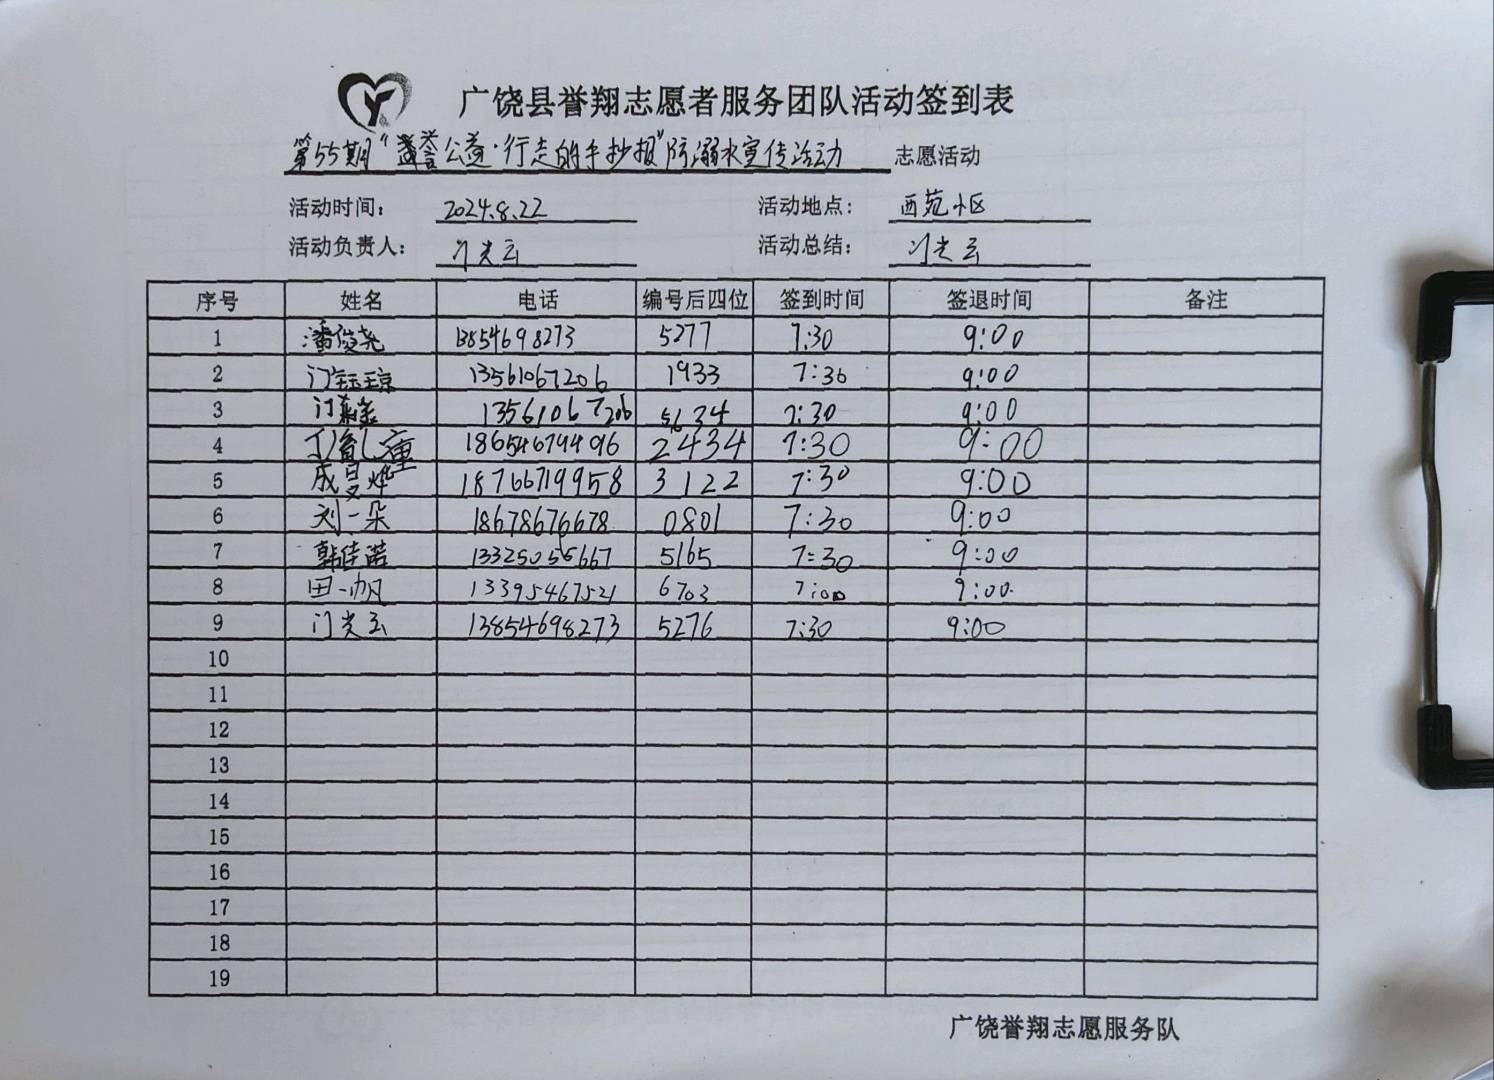 广饶县誉翔志愿者服务团队活动签到表
第55期“誉公益·行走的手抄报”防溺水宣传活动 志愿活动
活动时间: 2024.8.22 活动地点: 西苑小区
活动负责人: 门光云 活动总结: 门光云
序号 姓名 电话 编号后四位 签到时间 签退时间 备注
1 潘俊尧 13854698273 5277 7:30 9:00
2 门钰琼 13561067206 1933 7:30 9:00
3 门 13561067206 5634 7:30 9:00
4 18654679496 2434 7:30 9:00
5 成昊烨 18766719958 3122 7:30 9:00
6 刘一朵 18678676678 0801 7:30 9:00
7 韩佳诺 13325055667 5165 7:30 9:00
8 田一帆 13395467521 6703 7:00 9:00
9 门光云 13854698273 5276 7:30 9:00
10
11
12
13
14
15
16
17
18
19
广饶誉翔志愿服务队